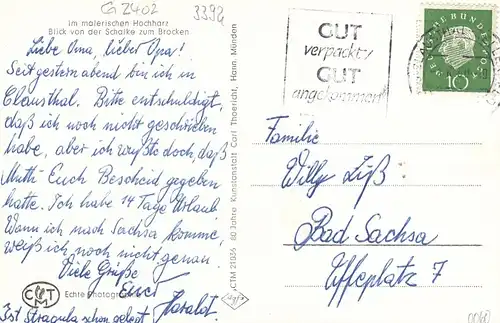 GZ402
3392
Im malerischen Hochharz
Blick von der Schalke zum Brocken
Liebe Oma, lieber Opa!
Seit gestern abend bin ich in
Clausthal. Bitte entschuldigt,
daß ich noch nicht geschrieben
habe, aber ich wußte doch, daß
Mutti Euch Bescheid gegeben
hatte. Ich habe 14 Tage Urlaub
Wann ich nach Sachsa komme,
weiß ich noch nicht genau.
Viele Grüße
Euer
Harald.
Ist schon gelegt
CMT
Echte Photogra
CTM 21936 80 Jahre Kunstanstalt Carl Thoericht, Hann. Münden
GUT
verpackt/
GUT
angekommen!
DEUTSCHE BUNDESPOST
10
Familie
Willy Liß
Bad Sachsa
Uffeplatz 7